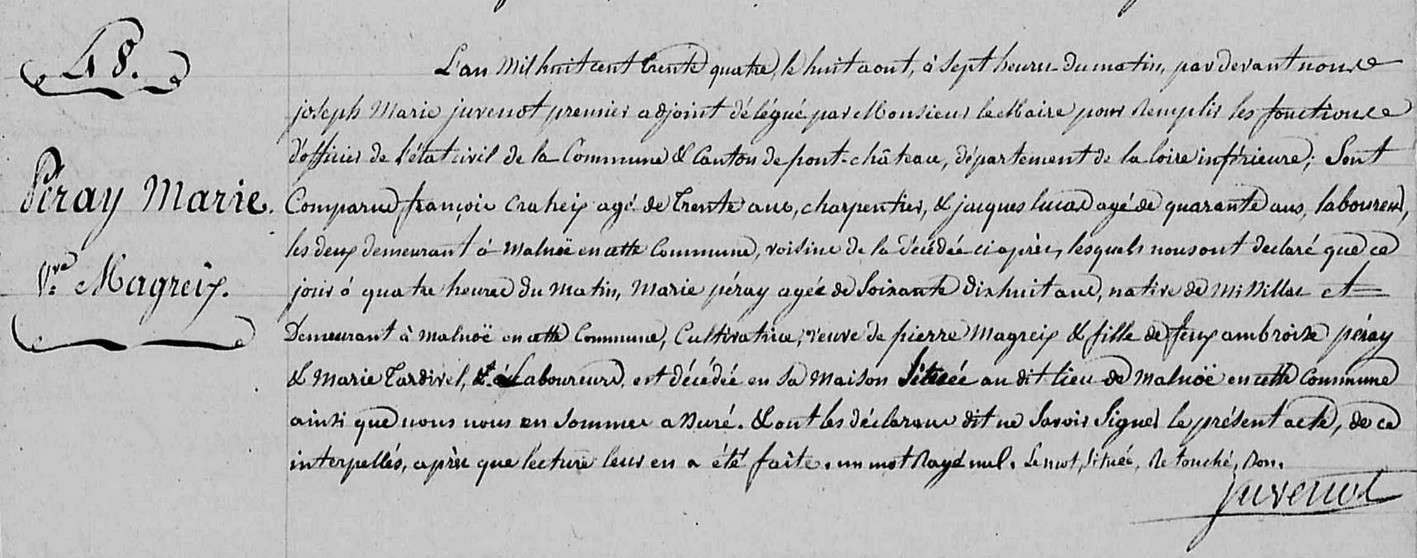 48.
Péray Marie.
V.ve Magreix.
L'an Mil huit cent trente quatre, le huit aout, à sept heures du matin, par devant nous
joseph Marie juvenot premier adjoint délégué par Monsieur le Maire pour remplir les fonctions
d'officier de l'état civil de la Commune & Canton de pont-château, département de la loire inférieure; Sont
Comparus françois Craheix agé de trente ans, charpentier, & jacques lucas agé de quarante ans, laboureur,
les deux demeurant à Malnoë en cette Commune, voisins de la décédée ci après, lesquels nous ont declaré que ce
jour à quatre heures du matin, Marie péray agée de Soixante dix huit ans, native de Missillac et
Demeurant à Malnoë en cette Commune, Cultivatrice, veuve de pierre Magreix & fille de feux ambroise péray
& Marie Tardivel, Laboureurs, est décédée en sa Maison Située au dit lieu de Malnoë en cette Commune
ainsi que nous nous en sommes assuré. & ont les déclarans dit ne savoir Signer le présent acte, de ce
interpellés, après que lecture leur en a été faite. un mot rayé nul. Le mot, située, retouché, bon.
juvenot